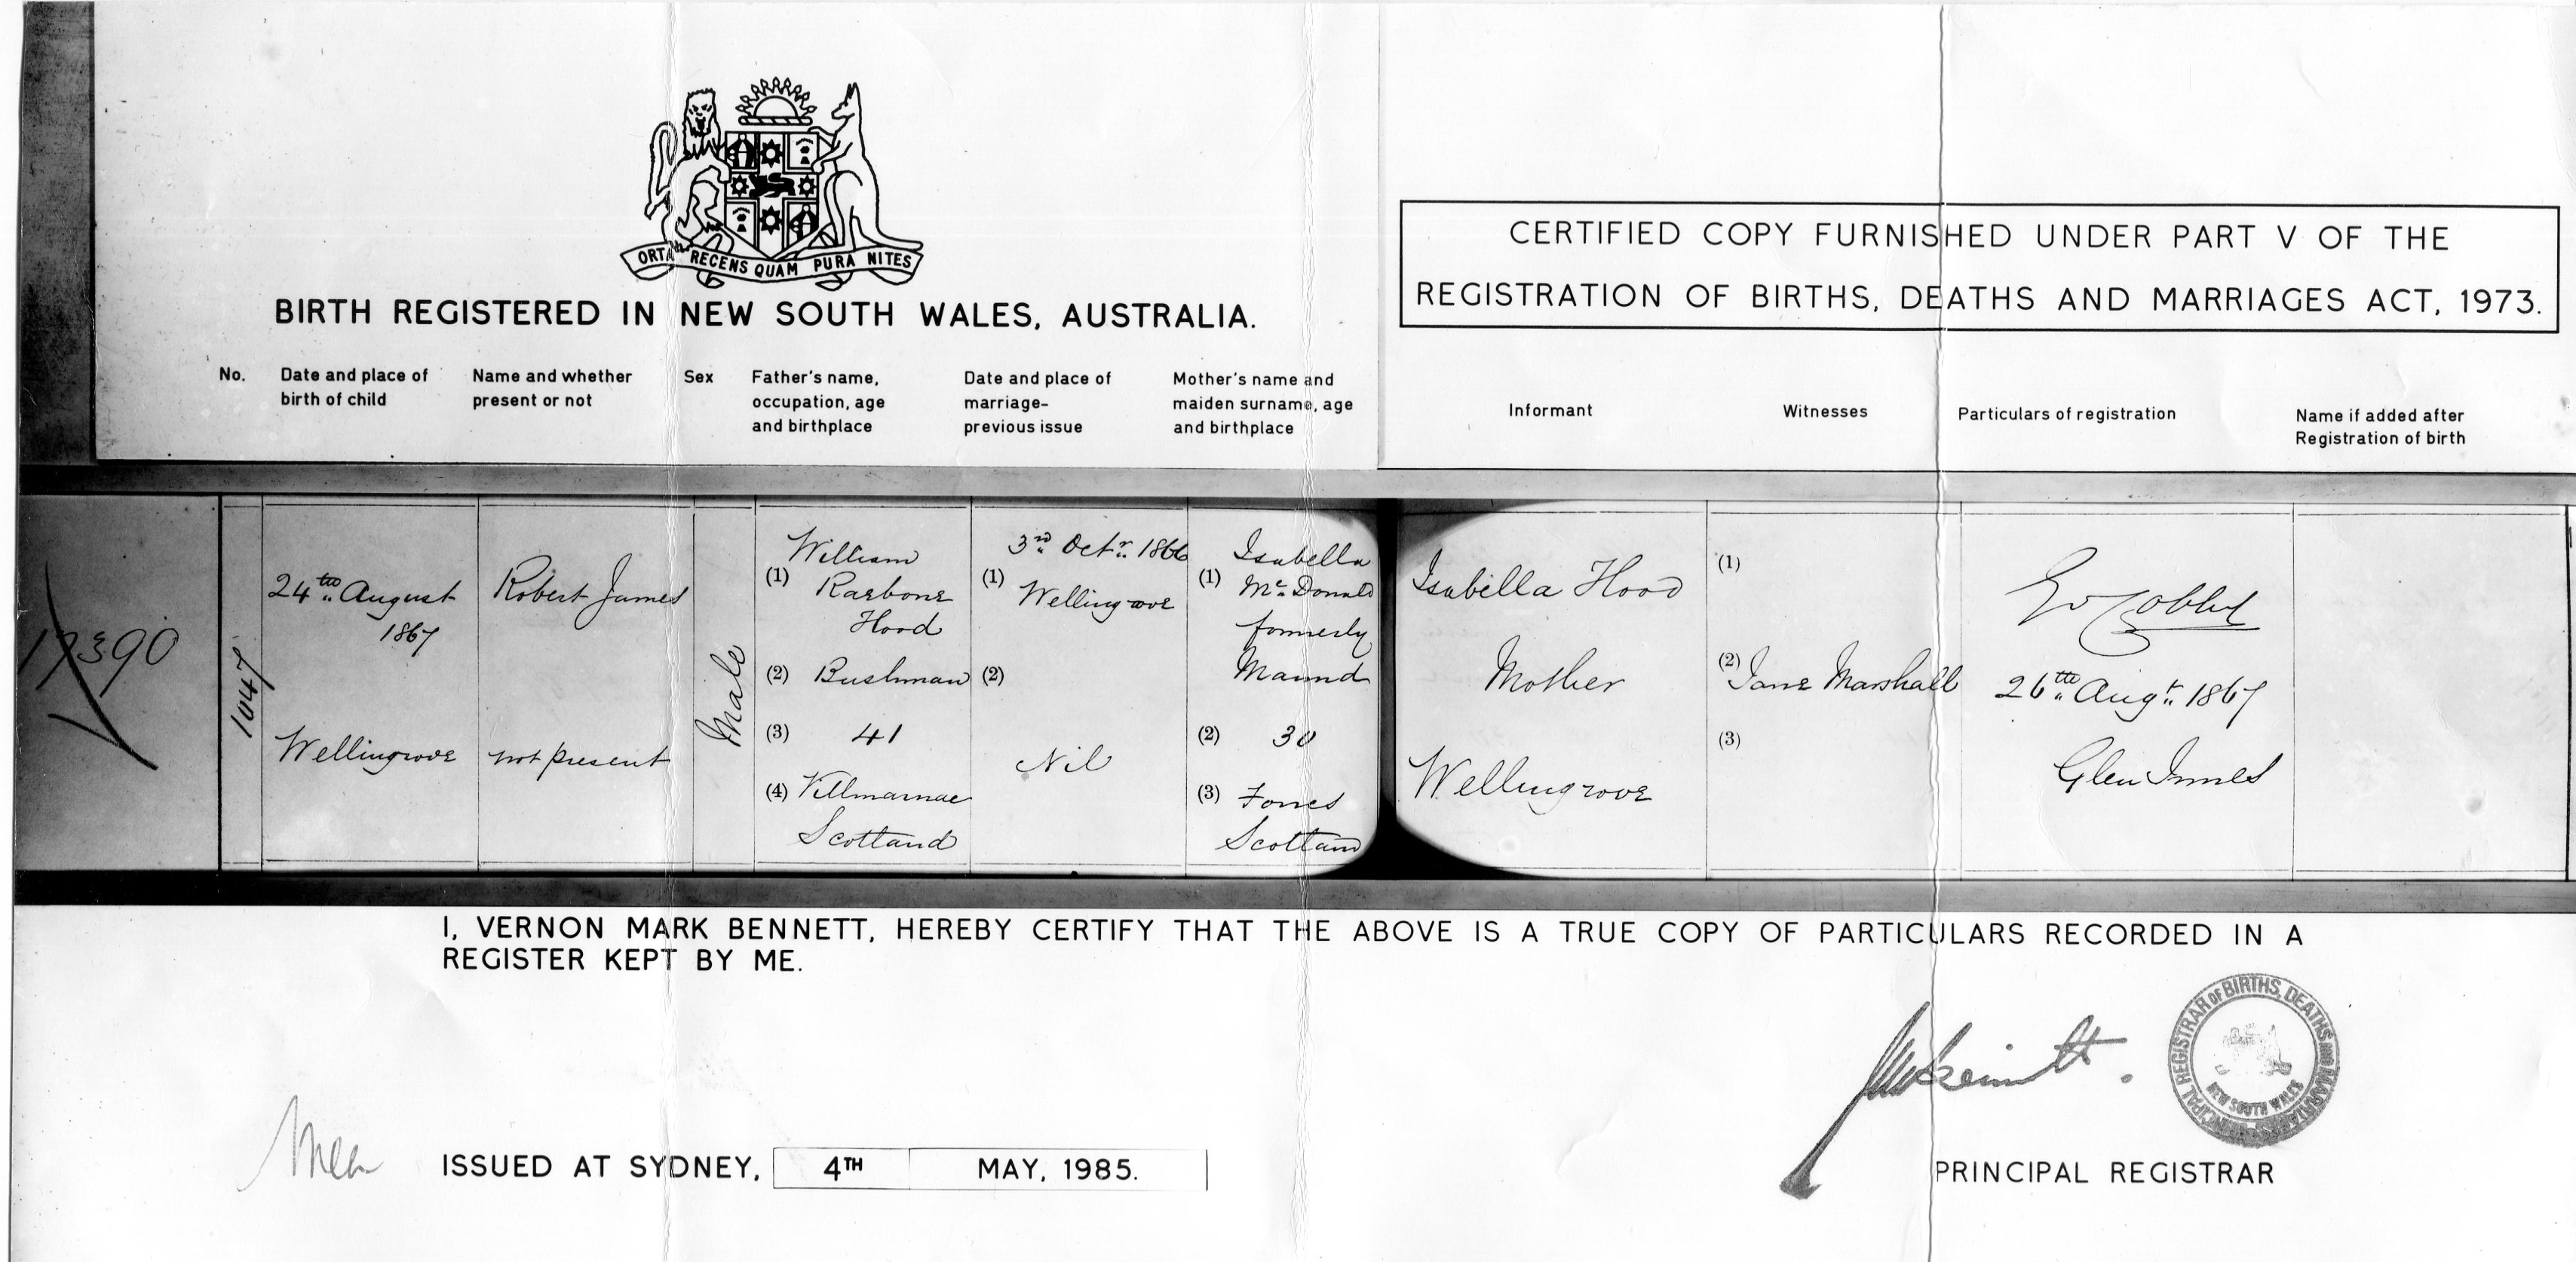 ORTA RECENS QUAM PURA NITES
BIRTH REGISTERED IN NEW SOUTH WALES, AUSTRALIA.
CERTIFIED COPY FURNISHED UNDER PART V OF THE
REGISTRATION OF BIRTHS, DEATHS AND MARRIAGES ACT, 1973.
No.
Date and place of
birth of child
Name and whether
present or not
Sex
Father's name,
occupation, age
and birthplace
Date and place of
marriage-
previous issue
Mother's name and
maiden surname, age
and birthplace
Informant
Witnesses
Particulars of registration
Name if added after
Registration of birth
17390
1047
24th August
1867
Wellingrove
Robert James
not present
Male
William
(1) Raebone
Hood
(2) Bushman
(3) 41
(4)
Scotland
3rd Octr. 1866
(1) Wellingrove
(2)
Nil
Isabella
(1) McDonald
formerly
Maund
(2) 30
(3) Forres
Scotland
Isabella Hood
Mother
Wellingrove
(1)
(2) Jane Marshall
(3)
26th Augt. 1867
Glen Innes
I, VERNON MARK BENNETT, HEREBY CERTIFY THAT THE ABOVE IS A TRUE COPY OF PARTICULARS RECORDED IN A
REGISTER KEPT BY ME.
ISSUED AT SYDNEY, 4TH MAY, 1985.
PRINCIPAL REGISTRAR OF BIRTHS, DEATHS AND MARRIAGES
NEW SOUTH WALES
PRINCIPAL REGISTRAR